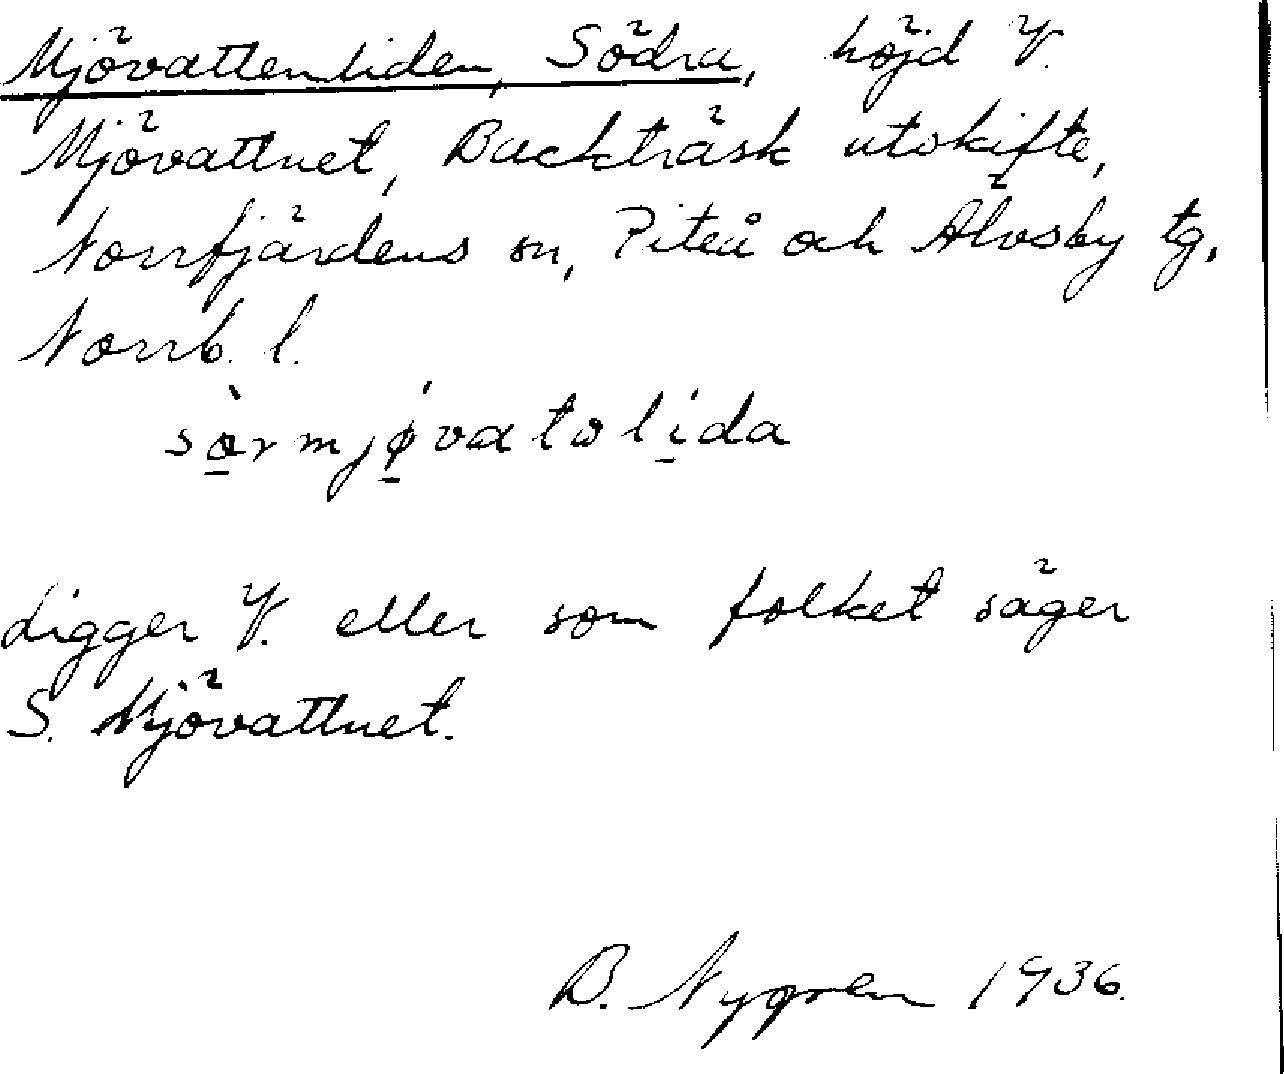 Mjövattenliden, Södra, höjd V.
Mjövattnet, Backträsk utskifte,
Norrfjärdens sn, Piteå och Älvsby tg,
Norrb. l.
sørmjøvatωlida
Ligger V. eller som folket säger
S. Mjövattnet.
B. Nygren 1936.